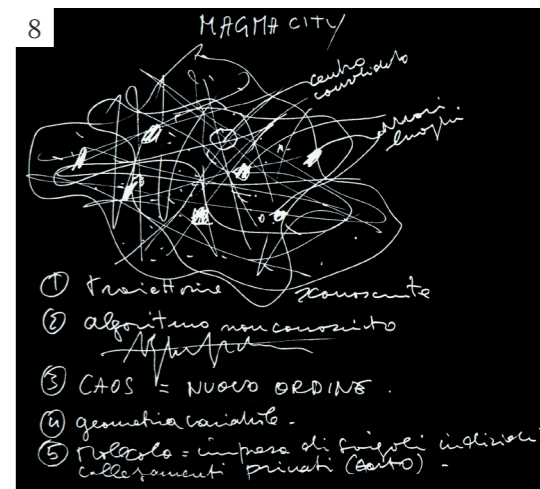 8
MAGMA CITY
centro
consolidato
nuovi
luoghi
① traiettorie sconosciute
② algoritmo non conosciuto
③ CAOS = NUOVO ORDINE.
④ geometria variabile -
⑤ Molecola = impresa di singoli individui
collegamenti privati (auto) -